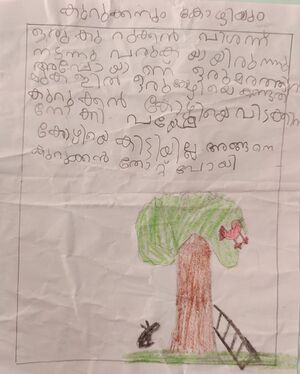 കുറുക്കനും കോഴിയും
ഒരു കുറുക്കൻ വിശന്ന്
നടന്നു വരുകയായിരുന്നു
അപ്പോയാണ് ഒരു മരത്തിന്
മുകളിൽ ഒരു കോഴിയെ കണ്ടത്
കുറുക്കൻ കോഴിയെ
നോക്കി
കോഴിയെ കിട്ടിയില്ല അങ്ങനെ
കുറുക്കൻ തോറ്റ് പോയി